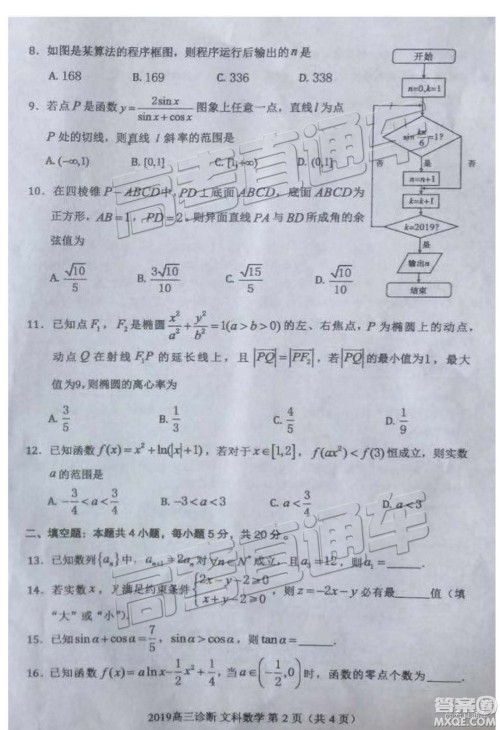 8. 如图是某算法的程序框图，则程序运行后输出的n是
A. 168 B. 169 C. 336 D. 338
9. 若点P是函数y=2sinx/(sinx+cosx)图象上任意一点，直线l为点
P处的切线，则直线l斜率的范围是
A. (-∞,1) B. [0,1] C. [1,+∞) D. (0,1]
10. 在四棱锥P-ABCD中，PD⊥底面ABCD，底面ABCD为
正方形，AB=1，PD=2，则异面直线PA与BD所成角的余
弦值为
A. √10/5 B. 3√10/10 C. √15/5 D. √10/10
开始
n=0,k=1
sin kπ/6=1?
否 是 否
n=n+1
k=k+1
k=2019?
是
输出n
结束
11. 已知点F₁，F₂是椭圆x²/a²+y²/b²=1(a>b>0)的左、右焦点，P为椭圆上的动点，
动点Q在射线F₁P的延长线上，且|PQ|=|PF₂|，若|PQ|的最小值为1，最大
值为9，则椭圆的离心率为
A. 3/5 B. 1/3 C. 4/5 D. 1/9
12. 已知函数f(x)=x²+ln(|x|+1)，若对于x∈[1,2]，f(ax²)<f(3)恒成立，则实数
a的范围是
A. -3/4<a<3/4 B. -3<a<3 C. a<3/4 D. a<3
二、填空题：本题共4小题，每小题5分，共20分。
13. 已知数列{aₙ}中，aₙ₊₁=2aₙ对∀n∈N*成立，且a₃=12，则a₁=
14. 若实数x，y满足约束条件{2x-y-2≥0 x+y-2≥0，则z=-2x-y必有最____值（填
“大”或“小”）
15. 已知sinα+cosα=7/5，sinα>cosα，则tanα=
16. 已知函数f(x)=alnx-1/2x²+1/4，当a∈(-1/2,0)时，函数的零点个数为
2019高三诊断 文科数学 第2页（共4页）
高考直通车
高考直通车
答案圈
MXQE.COM